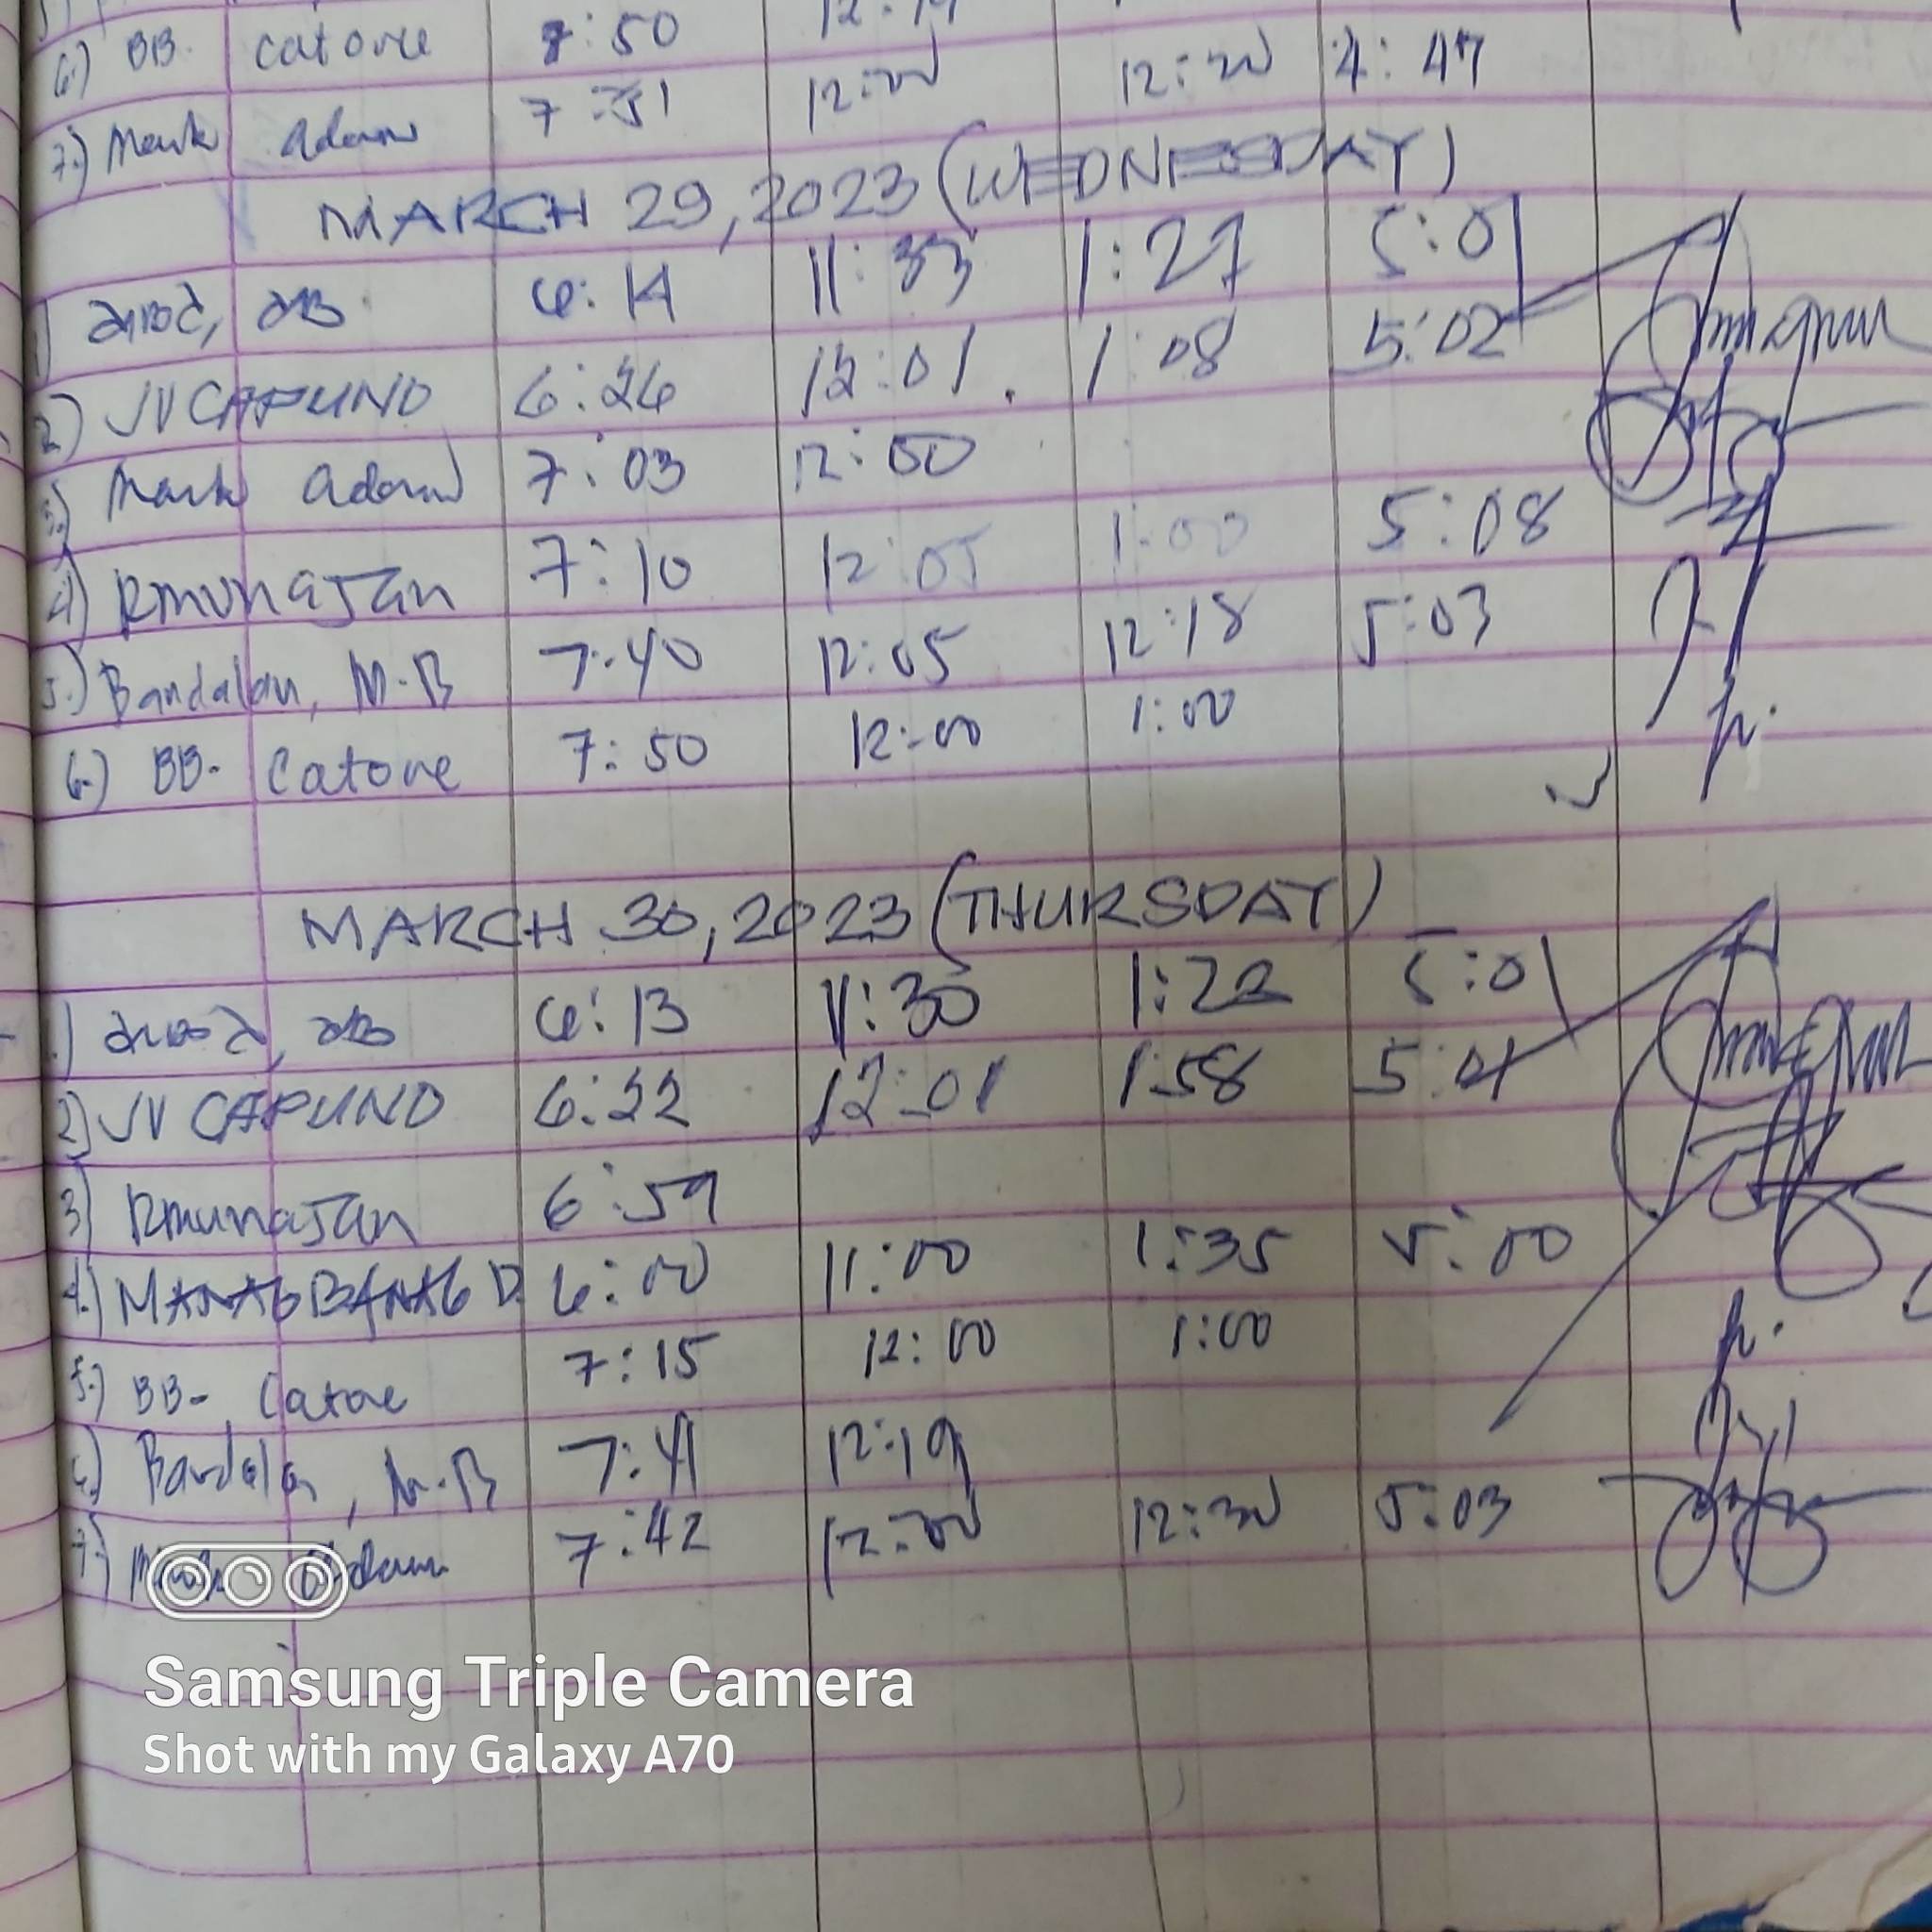 6.) BB. Catove 7:50
7.) Mark Adam 7:51 12:00 12:30 4:47
MARCH 29, 2023 (WEDNESDAY)
1) 6:14 11:33 1:27 5:01
2) JV CAPUNO 6:26 12:01 1:08 5:02
3.) Mark Adam 7:03 12:00
4) Rmunajan 7:10 12:05 1:00 5:08
5.) Bandalan, M.B 7:40 12:05 12:18 5:03
6.) BB. Catove 7:50 12:00 1:00
MARCH 30, 2023 (THURSDAY)
1.) 6:13 11:30 1:22 5:01
2) JV CAPUNO 6:22 12:01 1:58 5:01
3) Rmunajan 6:59
4.) MANAGBANAG D. 6:00 11:00 1:35 5:00
5.) BB- Catove 7:15 12:00 1:00
6.) Bandalan, M.B 7:41 12:19
7.) Mark Adam 7:42 12:00 12:30 5:03
Samsung Triple Camera
Shot with my Galaxy A70